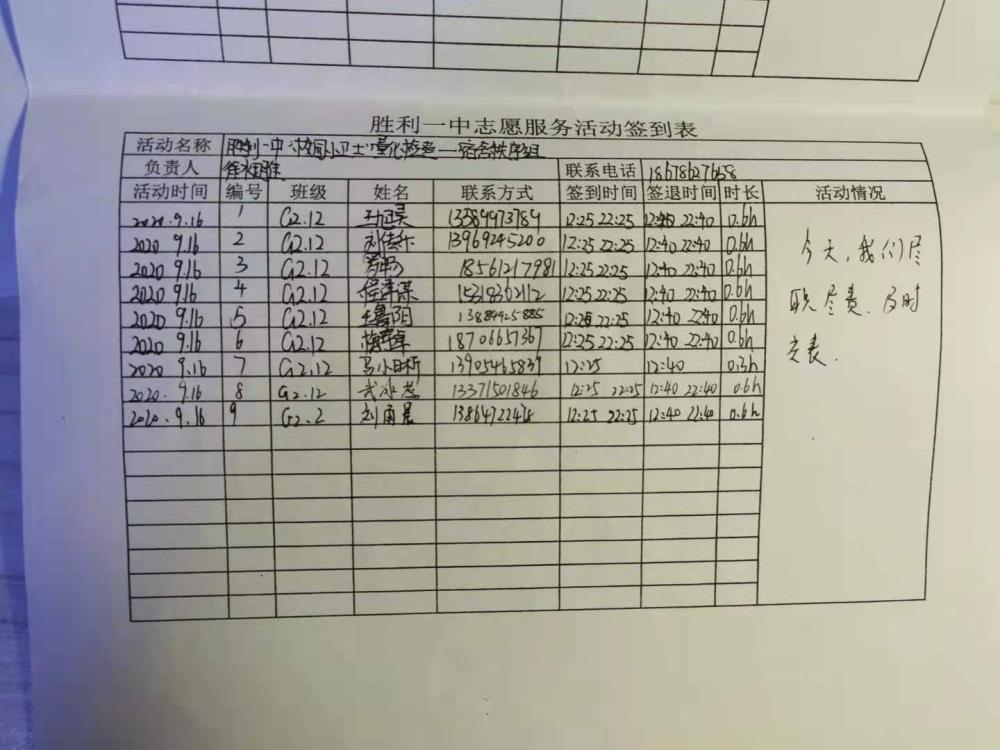 胜利一中志愿服务活动签到表
活动名称 胜利一中"校园小卫士"量化检查—宿舍秩序组
负责人 联系电话 18678627658
活动时间 编号 班级 姓名 联系方式 签到时间 签退时间 时长 活动情况
2020.9.16 1 G2.12 12:25 22:25 22:40 0.6h
2020 9.16 2 G2.12 13969245200 12:25 22:25 12:40 22:40 0.6h
2020 9.16 3 G2.12 18561217981 12:25 22:25 12:40 22:40 0.6h
2020 9.16 4 G2.12 15318362112 12:25 22:25 12:40 22:40 0.6h
2020 9.16 5 G2.12 鲁阳 13884925885 12:25 22:25 12:40 22:40 0.6h
2020 9.16 6 G2.12 18706657367 12:25 22:25 12:40 22:40 0.6h
2020 9.16 7 G2.12 13905465839 12:25 12:40 0.3h
2020.9.16 8 G2.12 武冰蕊 13371501846 12:25 22:25 12:40 22:40 0.6h
2020.9.16 9 G2.2 刘雨晨 12:25 22:25 12:40 22:40 0.6h
今天,我们尽
职尽责,及时
交表.